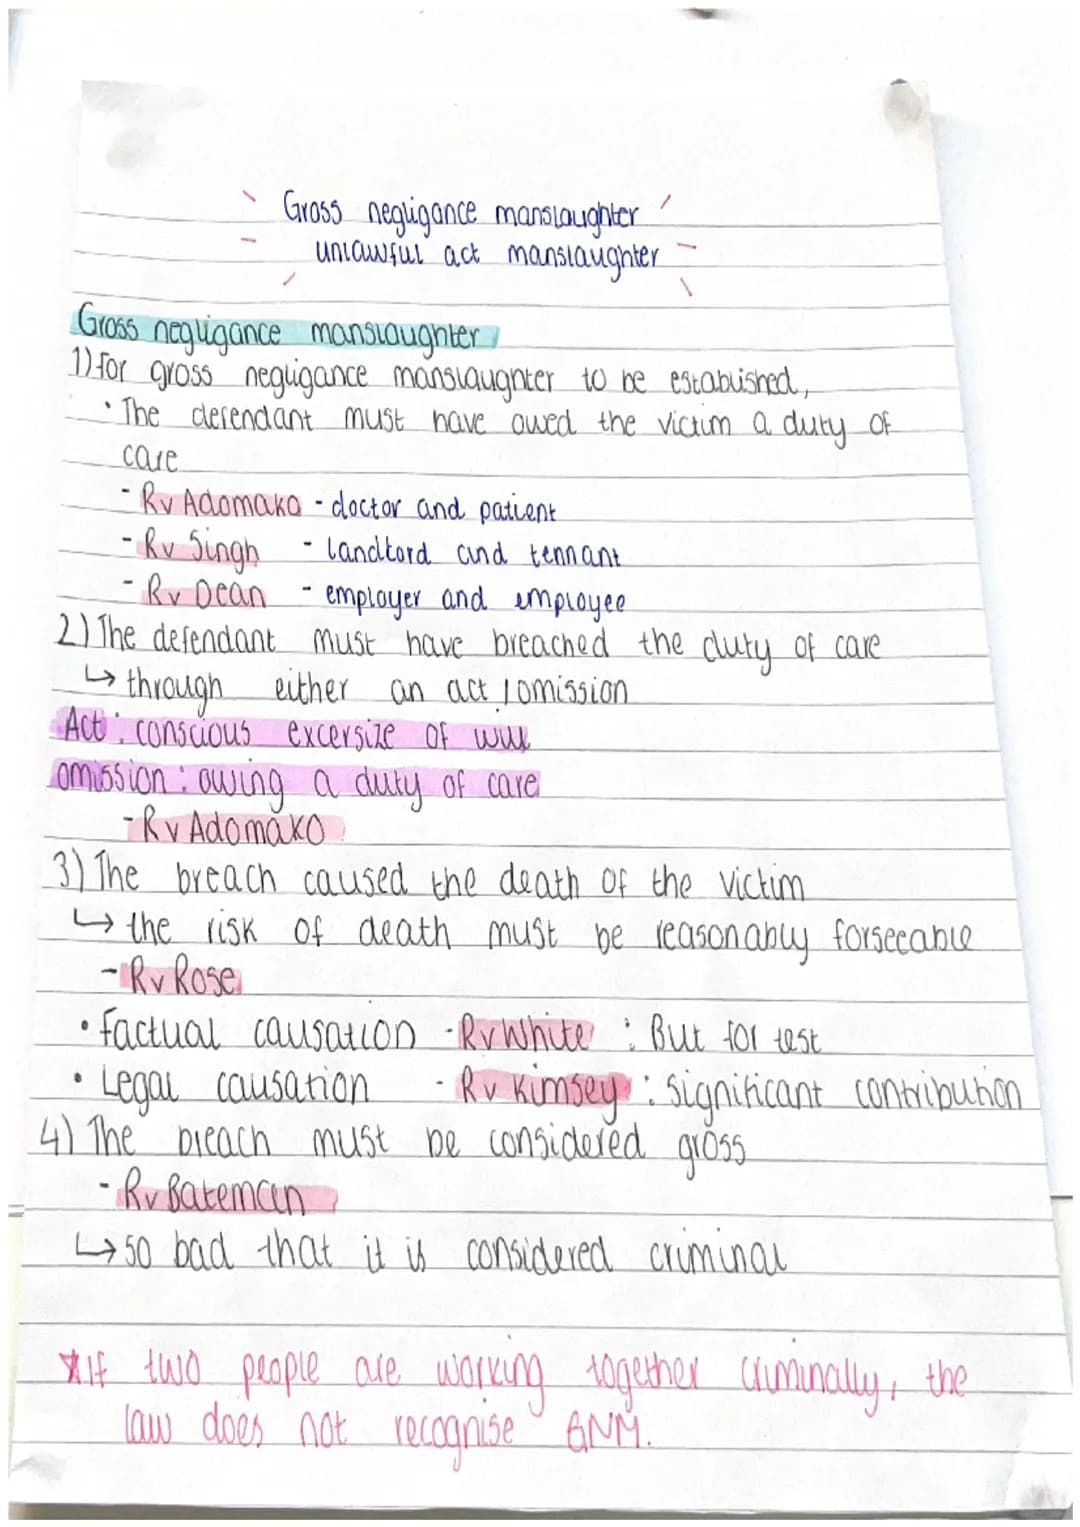 Gross negligance manslaughter
unlawful act manslaughter
Gross negligance manslaughter
1) for gross negligance manslaughter to be established,
• The defendant must have owed the victim a duty of
care
- R v Adomako - doctor and patient
- R v Singh - landlord and tennant
- R v Dean - employer and employee
2) The defendant must have breached the duty of care
↳ through either an act / omission
Act : conscious excersize of will
omission : owing a duty of care
- R v Adomako
3) The breach caused the death of the victim
↳ the risk of death must be reasonably forseeable
- R v Rose
• factual causation - R v White : But for test
• Legal causation - R v Kimsey : significant contribution
4) The breach must be considered gross
- R v Bateman
↳ so bad that it is considered criminal
* If two people are working together criminally, the
law does not recognise GNM.